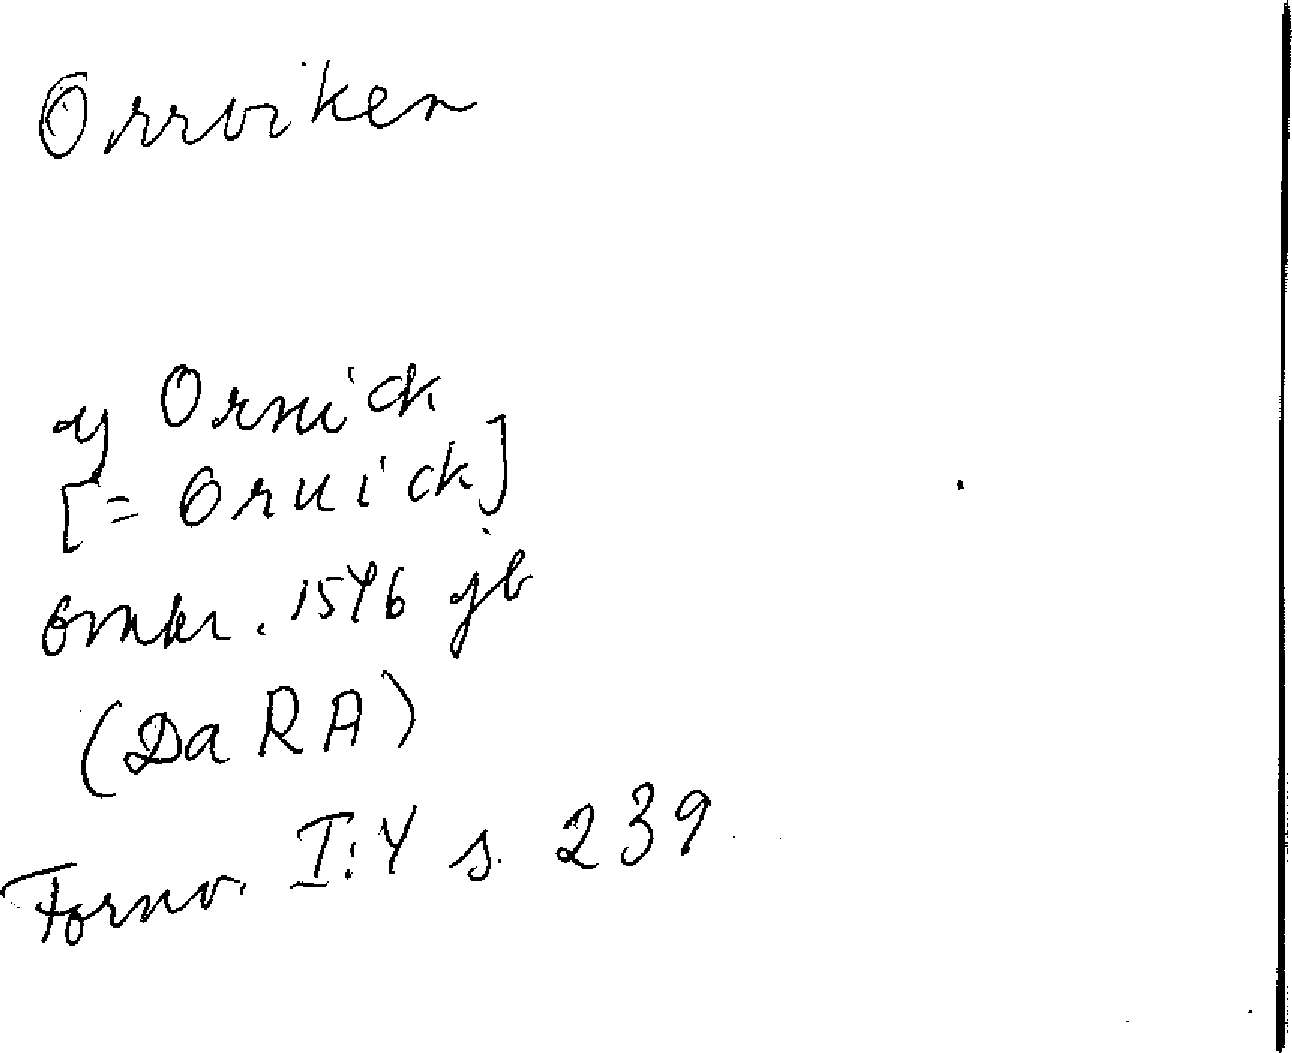 Orrviken
aff Ornick
[= Oruick]
omkr. 1546 jb
(Da RA)
Fornv. I:4 s. 239